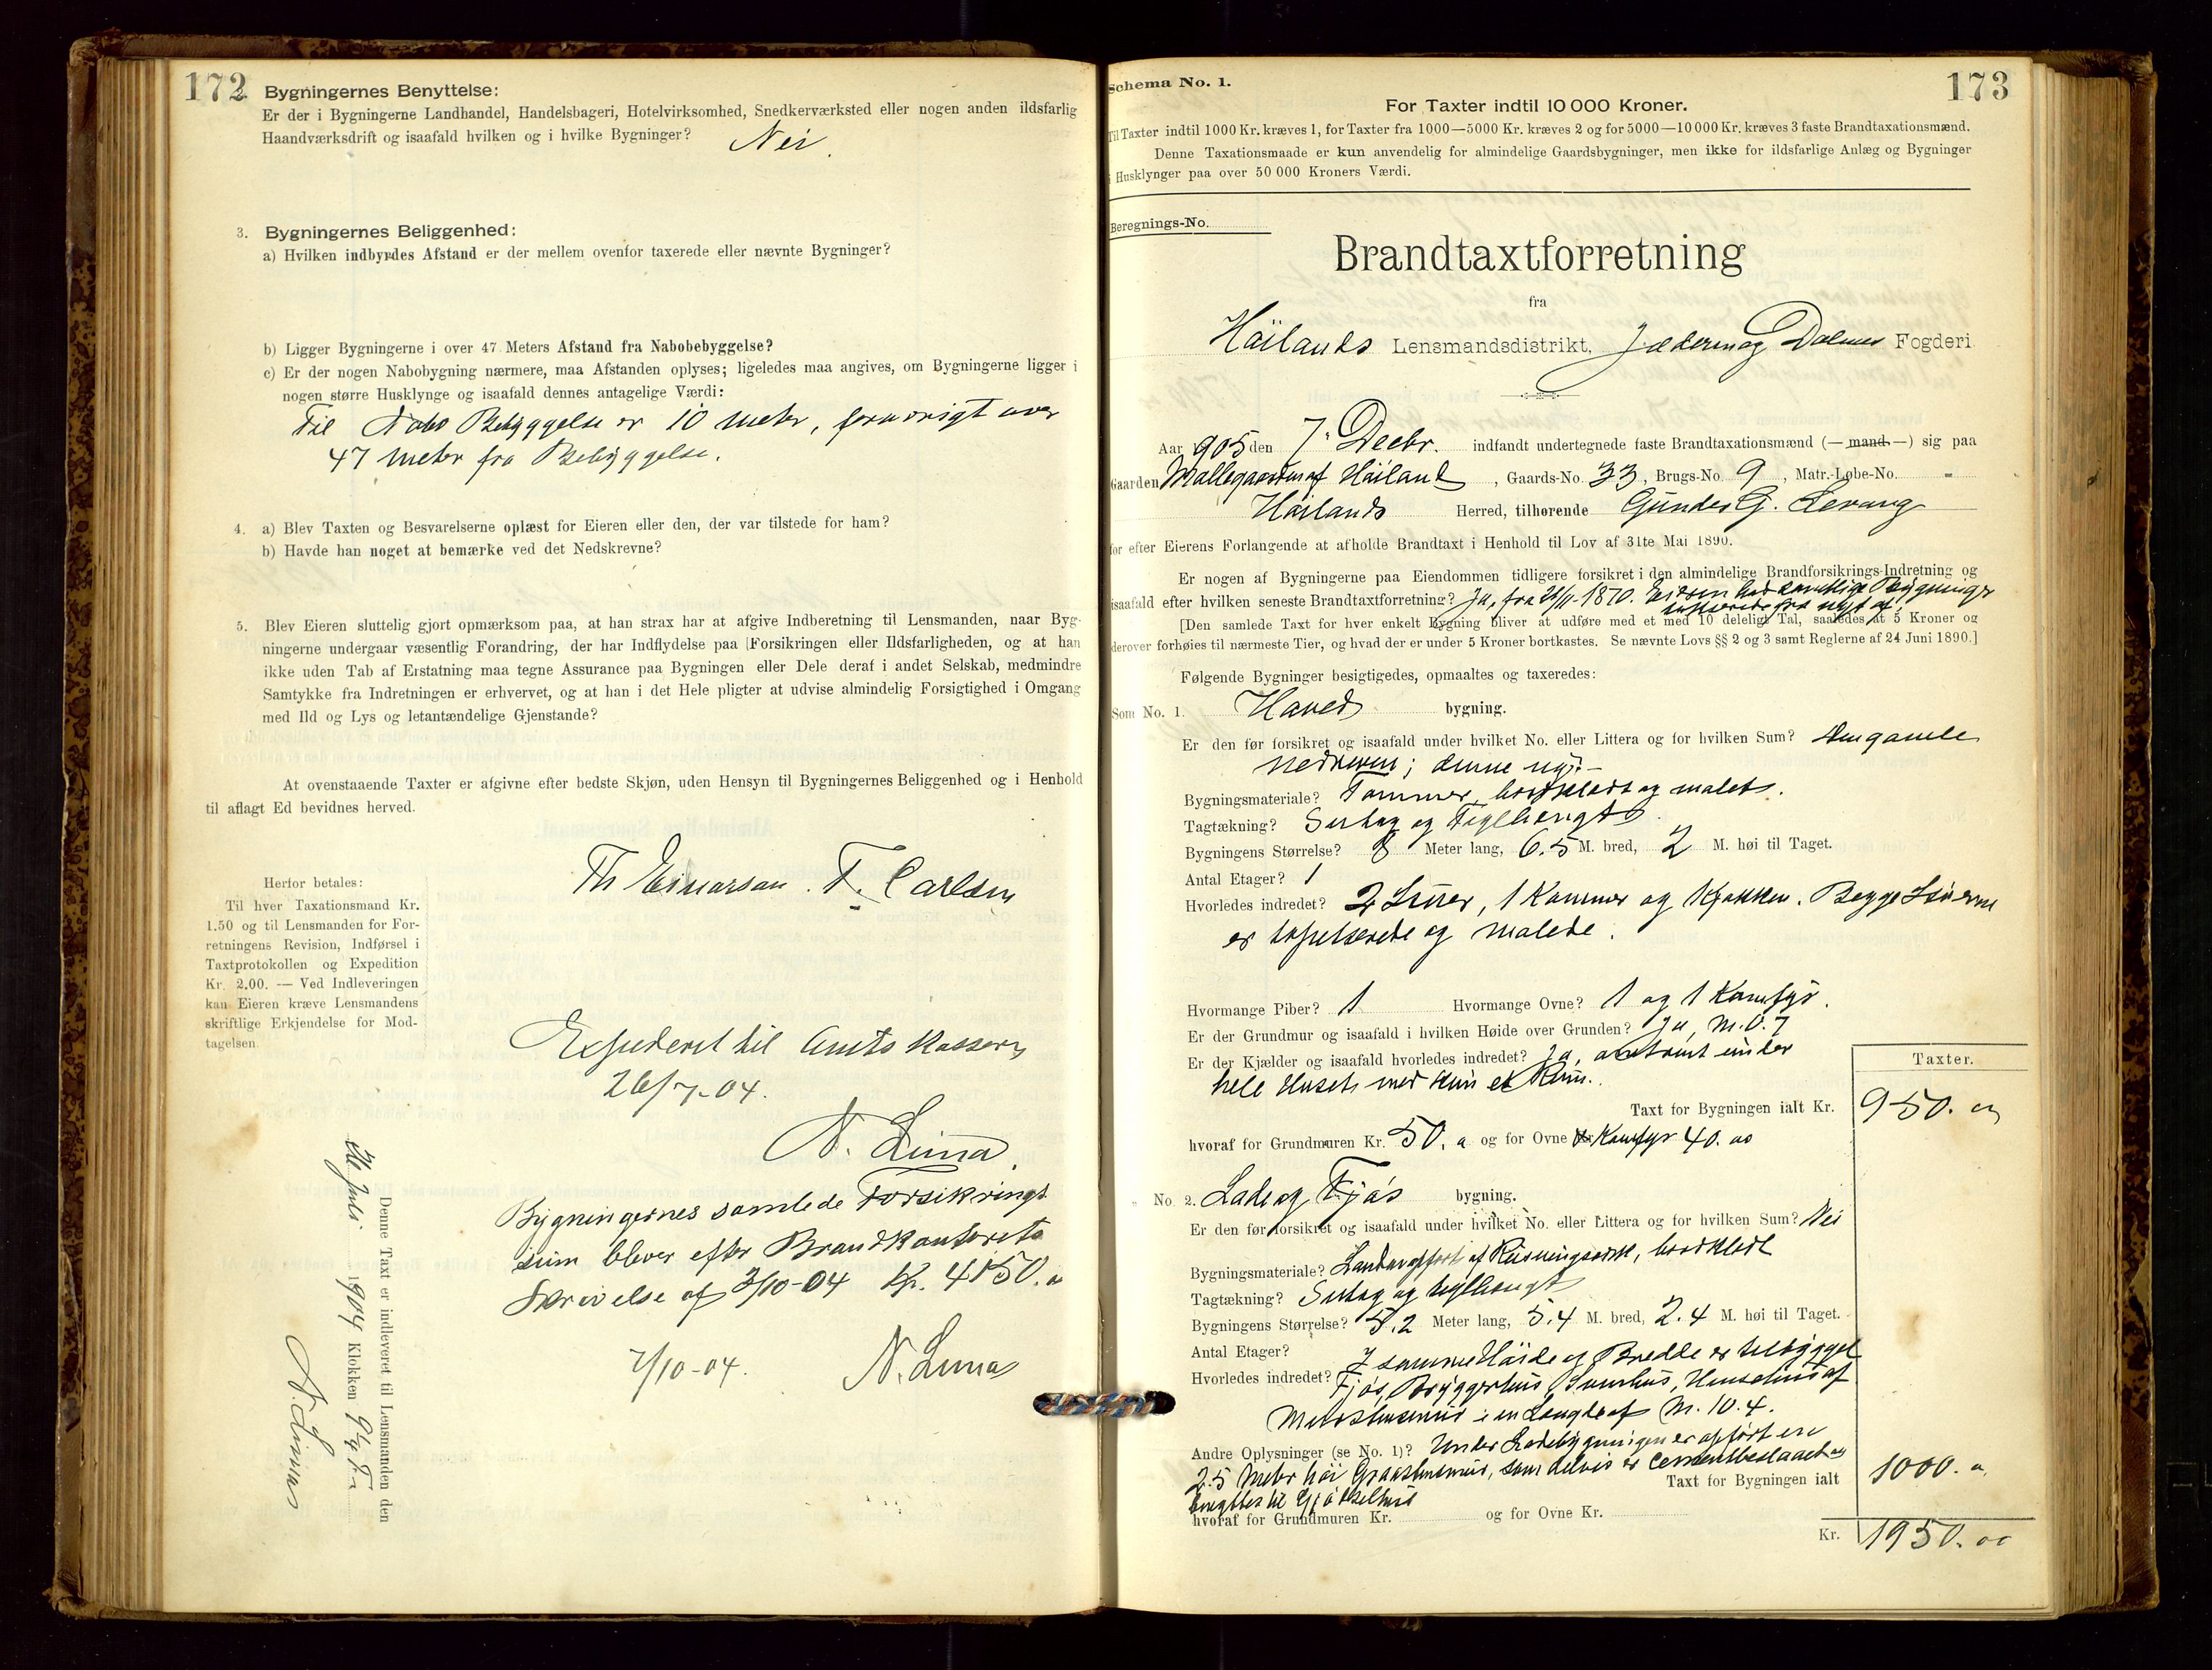 172
Bygningernes Benyttelse:
Er der i Bygningerne Landhandel, Handelsbageri, Hotelvirksomhed, Snedkerværksted eller nogen anden ildsfarlig
Haandværksdrift og isaafald hvilken og i hvilke Bygninger? Nei.
3. Bygningernes Beliggenhed:
a) Hvilken indbyrdes Afstand er der mellem ovenfor taxerede eller nævnte Bygninger?
b) Ligger Bygningerne i over 47 Meters Afstand fra Nabobebyggelse?
c) Er der nogen Nabobygning nærmere, maa Afstanden oplyses; ligeledes maa angives, om Bygningerne ligger i
nogen større Husklynge og isaafald dennes antagelige Værdi:
Til Nabo Bebyggelse er 10 meter, forøvrigt over
47 meter fra Bebyggelse.
4. a) Blev Taxten og Besvarelserne oplæst for Eieren eller den, der var tilstede for ham?
b) Havde han noget at bemærke ved det Nedskrevne?
5. Blev Eieren sluttelig gjort opmærksom paa, at han strax har at afgive Indberetning til Lensmanden, naar Byg-
ningerne undergaar væsentlig Forandring, der har Indflydelse paa Forsikringen eller Ildsfarligheden, og at han
ikke uden Tab af Erstatning maa tegne Assurance paa Bygningen eller Dele deraf i andet Selskab, medmindre
Samtykke fra Indretningen er erhvervet, og at han i det Hele pligter at udvise almindelig Forsigtighed i Omgang
med Ild og Lys og letantændelige Gjenstande?
At ovenstaaende Taxter er afgivne efter bedste Skjøn, uden Hensyn til Bygningernes Beliggenhed og i Henhold
til aflagt Ed bevidnes herved.
Th Einarsen. T. Carlsen
Herfor betales:
Til hver Taxationsmand Kr.
1.50 og til Lensmanden for For-
retningens Revision, Indførsel i
Taxtprotokollen og Expedition
Kr. 2.00. — Ved Indleveringen
kan Eieren kræve Lensmandens
skriftlige Erkjendelse for Mod-
tagelsen.
Expederet til Amtskassern
26/7-04.
N. Lima.
Bygningernes samlede Forsikrings
sum blever efter Brandkontorets
Skrivelse af 3/10-04 Kr. 4150.
7/10-04. N. Lima
Denne Taxt er indleveret til Lensmanden den
Juli 1904 Klokken
N. Lima
Schema No. 1.
173
For Taxter indtil 10 000 Kroner.
Til Taxter indtil 1000 Kr. kræves 1, for Taxter fra 1000—5000 Kr. kræves 2 og for 5000—10 000 Kr. kræves 3 faste Brandtaxationsmænd.
Denne Taxationsmaade er kun anvendelig for almindelige Gaardsbygninger, men ikke for ildsfarlige Anlæg og Bygninger
i Husklynger paa over 50 000 Kroners Værdi.
Beregnings-No.
Brandtaxtforretning
fra
Höilands Lensmandsdistrikt, Jæderen og Dalernes Fogderi
Aar 905 den 7 Decbr. indfandt undertegnede faste Brandtaxationsmænd (— mand —) sig paa
Gaarden Mallegaarden af Höiland, Gaards-No. 33, Brugs-No. 9, Matr.-Løbe-No. "
Höilands Herred, tilhørende Gunder G. Levang
for efter Eierens Forlangende at afholde Brandtaxt i Henhold til Lov af 31te Mai 1890.
Er nogen af Bygningerne paa Eiendommen tidligere forsikret i den almindelige Brandforsikrings-Indretning og
isaafald efter hvilken seneste Brandtaxtforretning? Ja, fra 21/11-1870. Eieren har samtlige Bygninger
[Den samlede Taxt for hver enkelt Bygning bliver at udføre med et med 10 deleligt Tal, saaledes at 5 Kroner og
derover forhøies til nærmeste Tier, og hvad der er under 5 Kroner bortkastes. Se nævnte Lovs §§ 2 og 3 samt Reglerne af 24 Juni 1890.]
Følgende Bygninger besigtigedes, opmaaltes og taxeredes:
Som No. 1. Hoved bygning.
Er den før forsikret og isaafald under hvilket No. eller Littera og for hvilken Sum? Den gamle
nedreven; denne ny.—
Bygningsmateriale? Tømmer, bordklædt og malet.
Tagtækning? Sutag og Teglhængt.
Bygningens Størrelse? 8 Meter lang, 6.5 M. bred, 2 M. høi til Taget.
Antal Etager? 1
Hvorledes indredet? 2 Stuer, 1 Kammer og Kjøkken. Begge Stuerne
er tapetserede og malede.
Hvormange Piber? 1 Hvormange Ovne? 1 og 1 Komfyr.
Er der Grundmur og isaafald i hvilken Høide over Grunden? Ja, M. 0.7
Er der Kjælder og isaafald hvorledes indredet? Ja, omtrent under
hele Huset med kun et Rum.
Taxter.
Taxt for Bygningen ialt Kr. 950.
hvoraf for Grundmuren Kr. 50. og for Ovne Kr. Komfyr 40. oo
" No. 2. Lade og Fjös bygning.
Er den før forsikret og isaafald under hvilket No. eller Littera og for hvilken Sum? Nei
Bygningsmateriale? Laden opfört af Reisningsværk, bordklædt
Tagtækning? Sutag og teglhængt
Bygningens Størrelse? 5.2 Meter lang, 5.4 M. bred, 2.4 M. høi til Taget.
Antal Etager? I samme Höide og Bredde er tilbygget
Hvorledes indredet? Fjös, Bryggerhus, Svinhus, Hönsehus af
i en Længde af M. 10.4.
Andre Oplysninger (se No. 1)? Under Ladebygningen er opfört en
2.5 Meter höi Graastensmur, som delvis er Cementbeslaaet og
benyttes til Gjödselhus
Taxt for Bygningen ialt 1000.
hvoraf for Grundmuren Kr. og for Ovne Kr.
Kr. 1950. oo